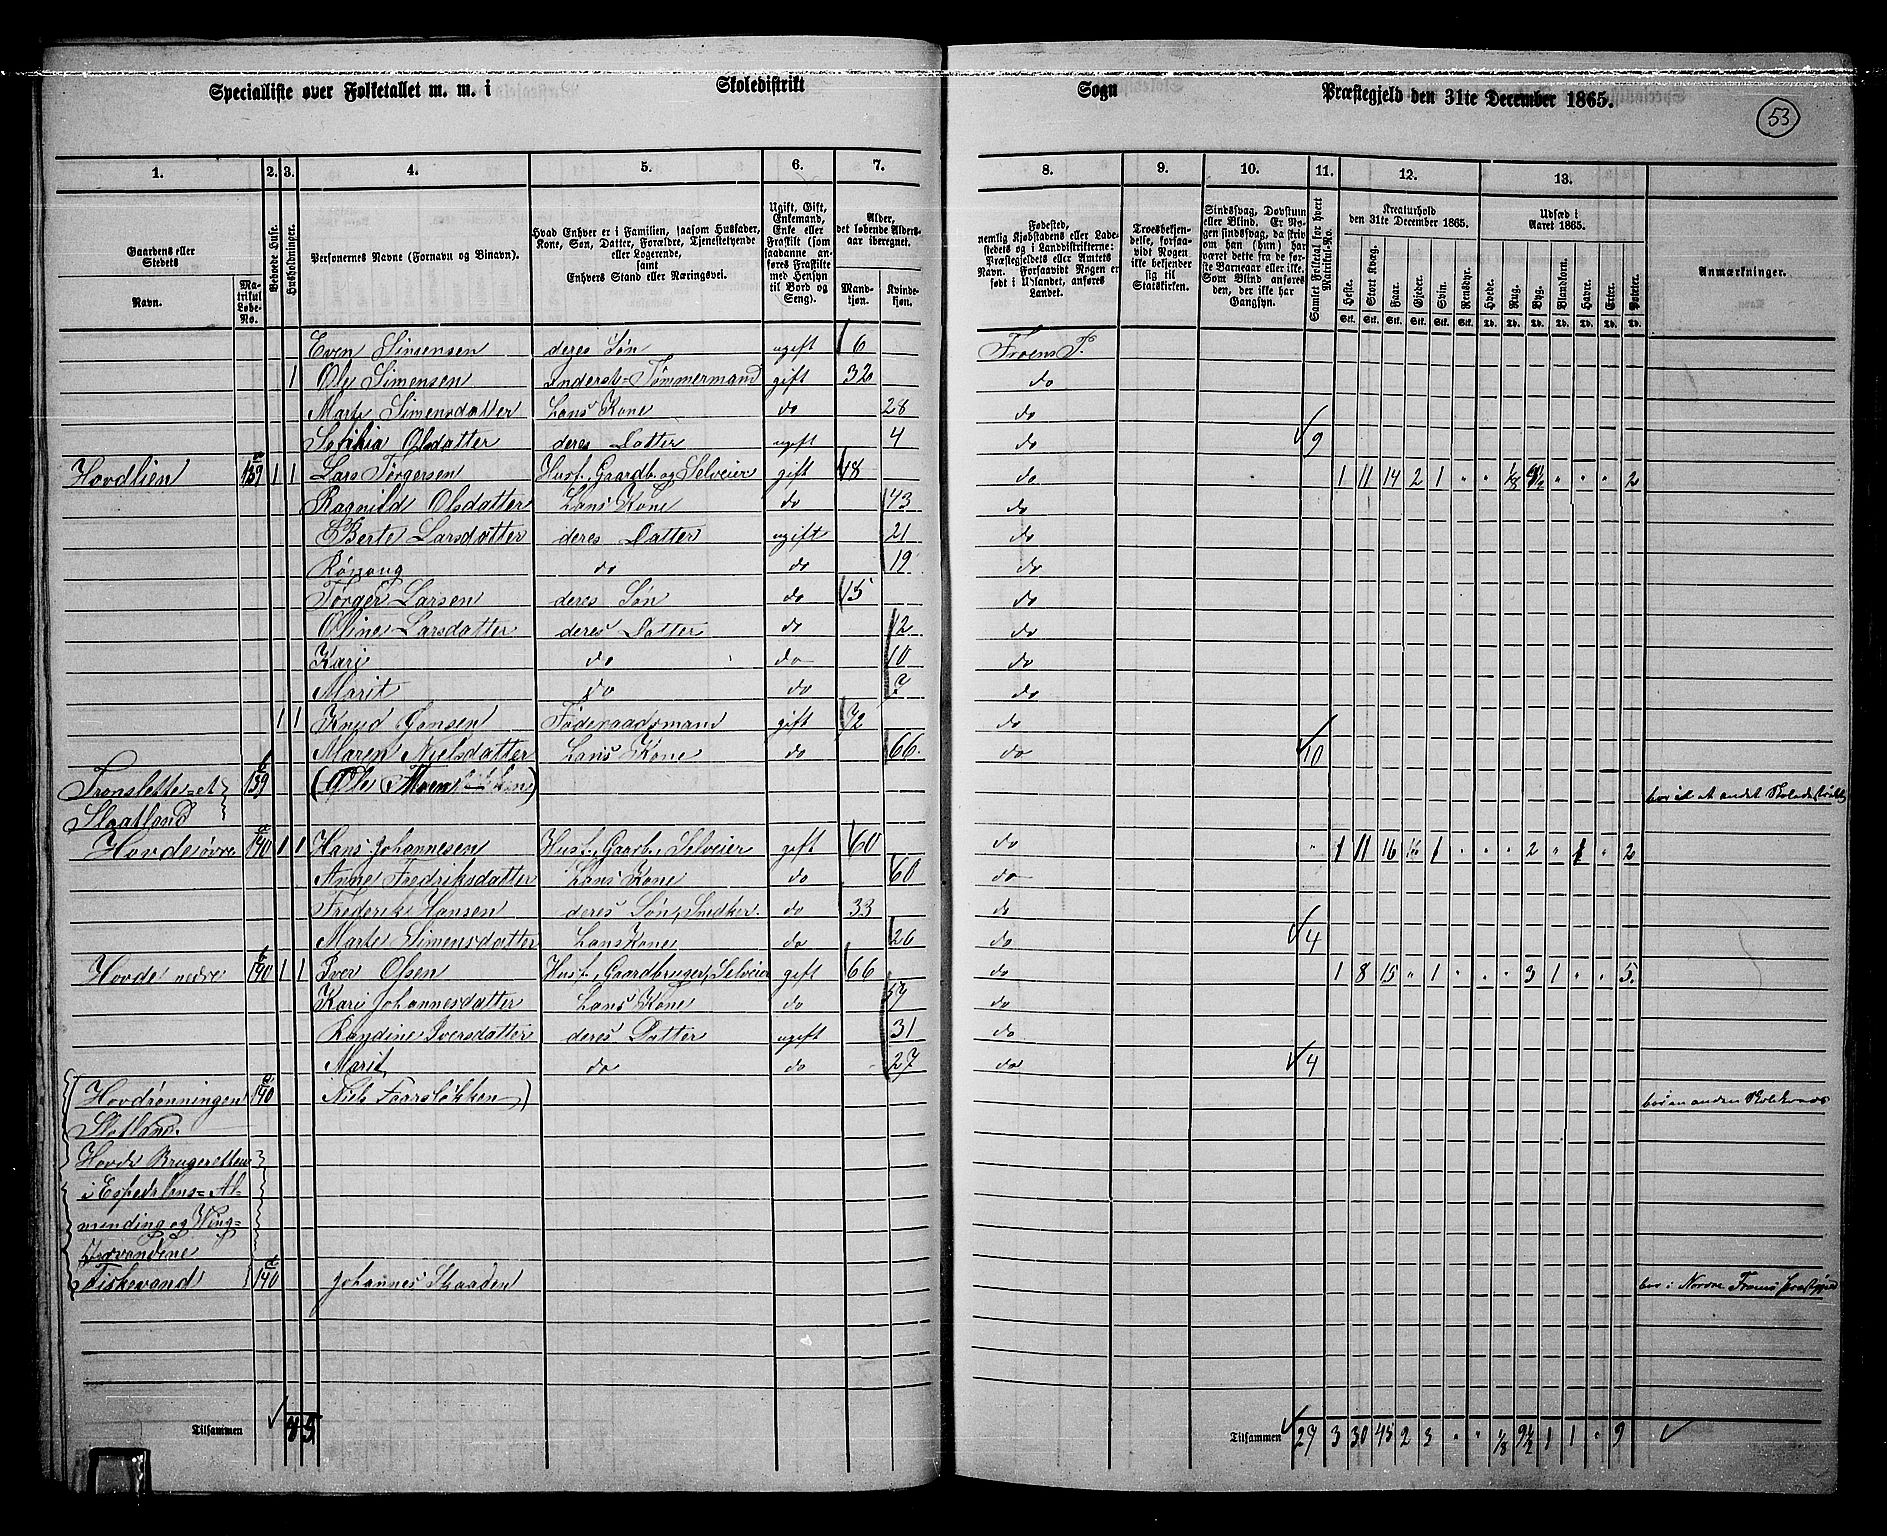 Specialliste over Folketallet m. m. i Skoledistrikt Sogn Præstegjeld den 31te December 1865.
53
1. 2. 3. 4. 5. 6. 7. 8. 9. 10. 11. 12. 13.
Gaardens eller Stedets
Navn.
Matrikul Løbe-No.
Beboede Huse.
Husholdninger.
Personernes Navne (Fornavn og Binavn).
Hvad Enhver er i Familien, saasom Husfader, Kone, Søn, Datter, Forældre, Tjenestetyende eller Logerende,
samt
Enhvers Stand eller Næringsvei.
Ugift, Gift, Enkemand, Enke eller Fraskilt (som saadanne anføres Fraskilte med Hensyn til Bord og Seng).
Alder, det løbende Aldersaar iberegnet.
Mandkjøn.
Kvindekjøn.
Fødested, nemlig Kjøbstadens eller Ladestedets og i Landdistrikterne: Præstegjeldets eller Amtets Navn. Forsaavidt Nogen er født i Udlandet, anføres Landet.
Troesbekjendelse, forsaavidt Nogen ikke bekjender sig til Statskirken.
Sindssvag, Døvstum eller Blind. Er Nogen sindssvag, da skriv om han (hun) har været dette fra de første Barneaar eller ikke. Som Blind anføres den, der ikke har Gangsyn.
Samlet Folketal for hvert Matrikul-No.
Kreaturhold den 31te December 1865.
Heste. Stort Kvæg. Faar. Gjeder. Svin. Rensdyr.
Stk. Stk. Stk. Stk. Stk. Stk.
Udsæd i Aaret 1865.
Hvede. Rug. Byg. Blandkorn. Havre. Erter. Poteter.
Td. Td. Td. Td. Td. Td. Td.
Anmærkninger.
Even Simensen deres Søn ugift 6 Froens P.
1 Ole Simensen Inderst-Tømmermand gift 32 do
Marte Simensdatter Hans Kone do 28 do
Sophia Olsdatter deres Datter ugift 4 do 9
Hovdlien 139 a 1 1 Lars Torgersen Husf. Gaardb. og Selveier gift 48 do 1 11 14 2 1 " " 1/8 4 1/2 " " " 2
Ragnild Olsdatter Hans Kone do 43 do
Berte Larsdatter deres Datter ugift 21 do
Rønnoug do do 19 do
Torger Larsen deres Søn do 15 do
Oline Larsdatter deres Datter do 12 do
Kari do do 10 do
Marit do do 7 do
1 1 Knud Hansen Føderaadsmand gift 72 do
Maren Nielsdatter Hans Kone do 66 do 10
139 b (Ole Moen
Slaatland
Hovde øvre 140 a 1 1 Hans Johannesen Husf., Gaardb., Selveier gift 60 do " 1 11 16 1 " " " 2 " 1 " 2
Anne Fredriksdatter Hans Kone do 60 do
Frederik Hansen deres Søn, Snedker. do 33 do
Marte Simensdatter Hans Kone do 26 do 4
Hovde nedre 140 b 1 1 Iver Olsen Husf., Gaardbruger, Selveier gift 66 do 1 8 15 " 1 " " " 3 1 " " 5.
Kari Johannesdatter Hans Kone do 57 do
Randine Iversdatter deres Datter ugift 31 do
Marit do do 27 do 4
Hovdrønningen 140 Niels Faarsløkken)
Slotland.
Hovde Brugeretten
i Espedalens-Al-
mending og
Fiskevand 140 Johannes Skaaden bor i Nordre Frons Præstegjeld
Tilsammen 4 5 Tilsammen 27 3 30 45 2 3 " " 1/8 9 1/2 1 1 " 9